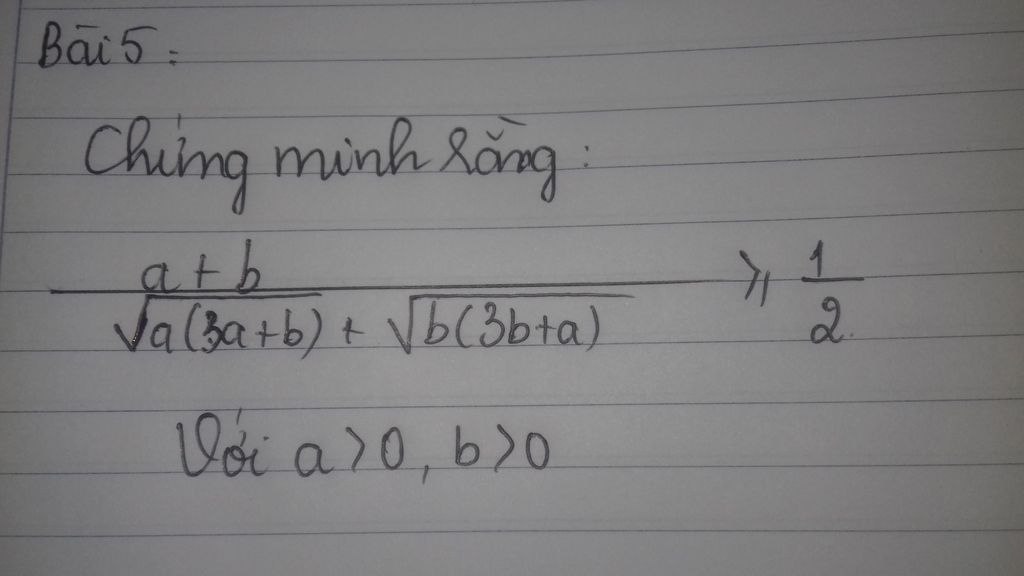 Bài 5:
Chứng minh rằng:
a + b / √a(3a+b) + √b(3b+a) ≥ 1/2
Với a > 0, b > 0